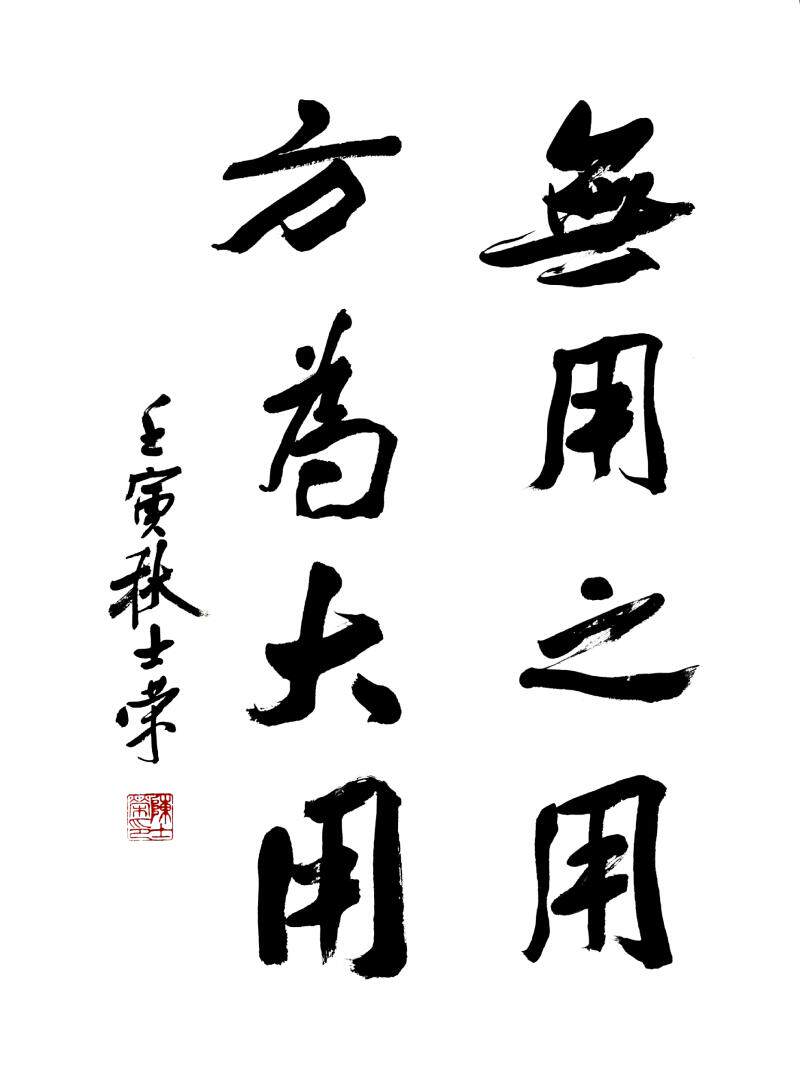 無用之用
方為大用
壬寅秋士荣
陳士榮印